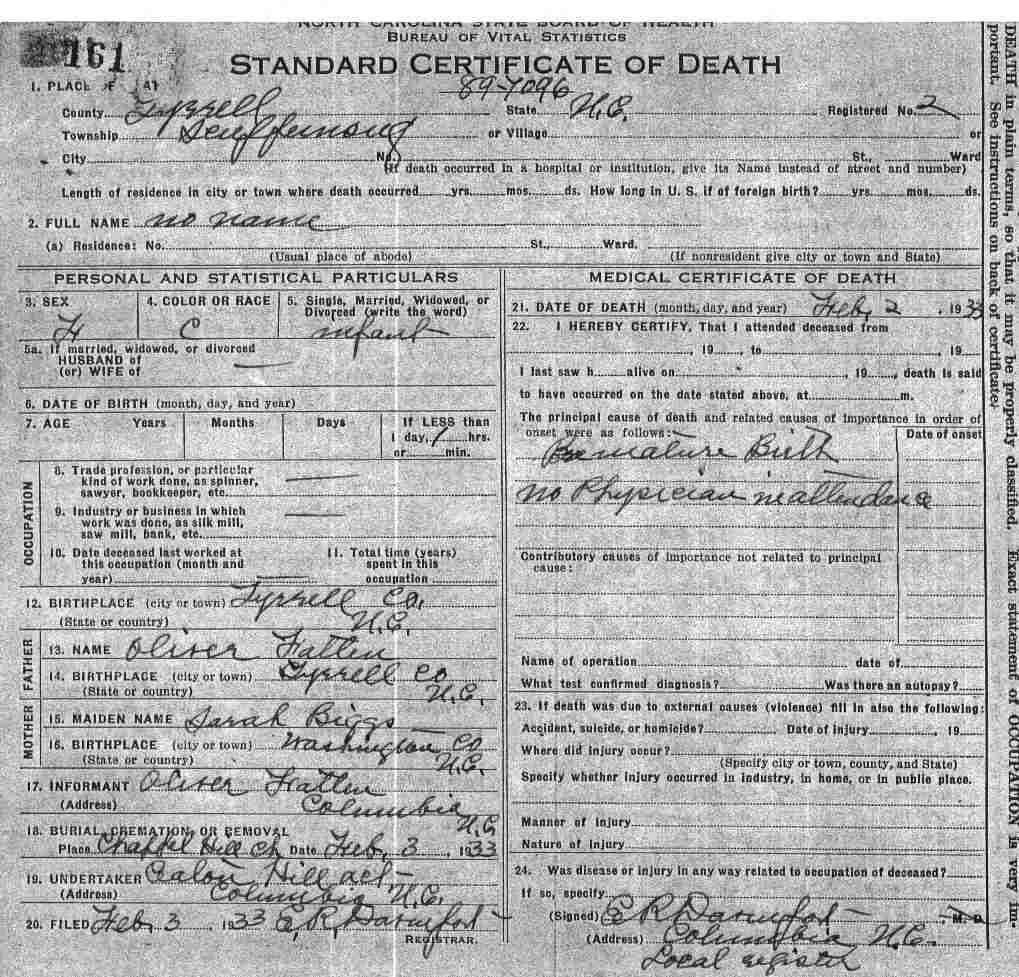 NORTH CAROLINA STATE BOARD OF HEALTH
BUREAU OF VITAL STATISTICS
161
STANDARD CERTIFICATE OF DEATH
89-7096
1. PLACE OF
County Tyrrell State N.C. Registered No. 2
Township Scuppernong or Village or
City No. St., Ward
(If death occurred in a hospital or institution, give its Name instead of street and number)
Length of residence in city or town where death occurred yrs. mos. ds. How long in U. S. if of foreign birth? yrs. mos. ds.
2. FULL NAME no name
(a) Residence: No. St., Ward.
(Usual place of abode) (If nonresident give city or town and State)
PERSONAL AND STATISTICAL PARTICULARS
3. SEX 4. COLOR OR RACE 5. Single, Married, Widowed, or
Divorced (write the word)
C infant
5a. If married, widowed, or divorced
HUSBAND of
(or) WIFE of
6. DATE OF BIRTH (month, day, and year)
7. AGE Years Months Days If LESS than
1 day, 1 hrs.
or min.
OCCUPATION
8. Trade profession, or particular
kind of work done, as spinner,
sawyer, bookkeeper, etc.
9. Industry or business in which
work was done, as silk mill,
saw mill, bank, etc.
10. Date deceased last worked at
this occupation (month and
year)
11. Total time (years)
spent in this
occupation
12. BIRTHPLACE (city or town) Tyrrell Co.
(State or country) N.C.
FATHER
13. NAME Oliver
14. BIRTHPLACE (city or town) Tyrrell Co
(State or country) N.C.
MOTHER
15. MAIDEN NAME Sarah Biggs
16. BIRTHPLACE (city or town) Washington Co
(State or country) N.C.
17. INFORMANT Oliver
(Address) Columbia N.C
18. BURIAL, CREMATION, OR REMOVAL
Place Chappel Hill Ch Date Feb. 3, 1933
19. UNDERTAKER Hill act-
(Address) Columbia N.C.
20. FILED Feb. 3 1933 E. R.
REGISTRAR.
MEDICAL CERTIFICATE OF DEATH
21. DATE OF DEATH (month, day, and year) Feb. 2, 1933
22. I HEREBY CERTIFY, That I attended deceased from
, 19 , to , 19
I last saw h alive on , 19 , death is said
to have occurred on the date stated above, at m.
The principal cause of death and related causes of importance in order of
onset were as follows: Date of onset
Premature Birth
no Physician in attendance
Contributory causes of importance not related to principal
cause:
Name of operation date of
What test confirmed diagnosis? Was there an autopsy?
23. If death was due to external causes (violence) fill in also the following:
Accident, suicide, or homicide? Date of injury , 19
Where did injury occur?
(Specify city or town, county, and State)
Specify whether injury occurred in industry, in home, or in public place.
Manner of injury
Nature of injury
24. Was disease or injury in any way related to occupation of deceased?
If so, specify
(Signed) E R M. D.
(Address) Columbia N.C.
Local register
DEATH in plain terms, so that it may be properly classified. Exact statement of OCCUPATION is very im-
portant. See instructions on back of certificate.